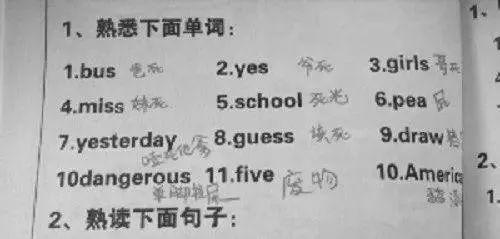 1、熟悉下面单词：
1.bus 爸死 2.yes 爷死 3.girls 哥死
4.miss 妹死 5.school 死光 6.pea 屁
7.yesterday 8.guess 该死 9.draw
10dangerous 单脚拉屎 11.five 废物 10.America
2、熟读下面句子：
1、
2、
1.